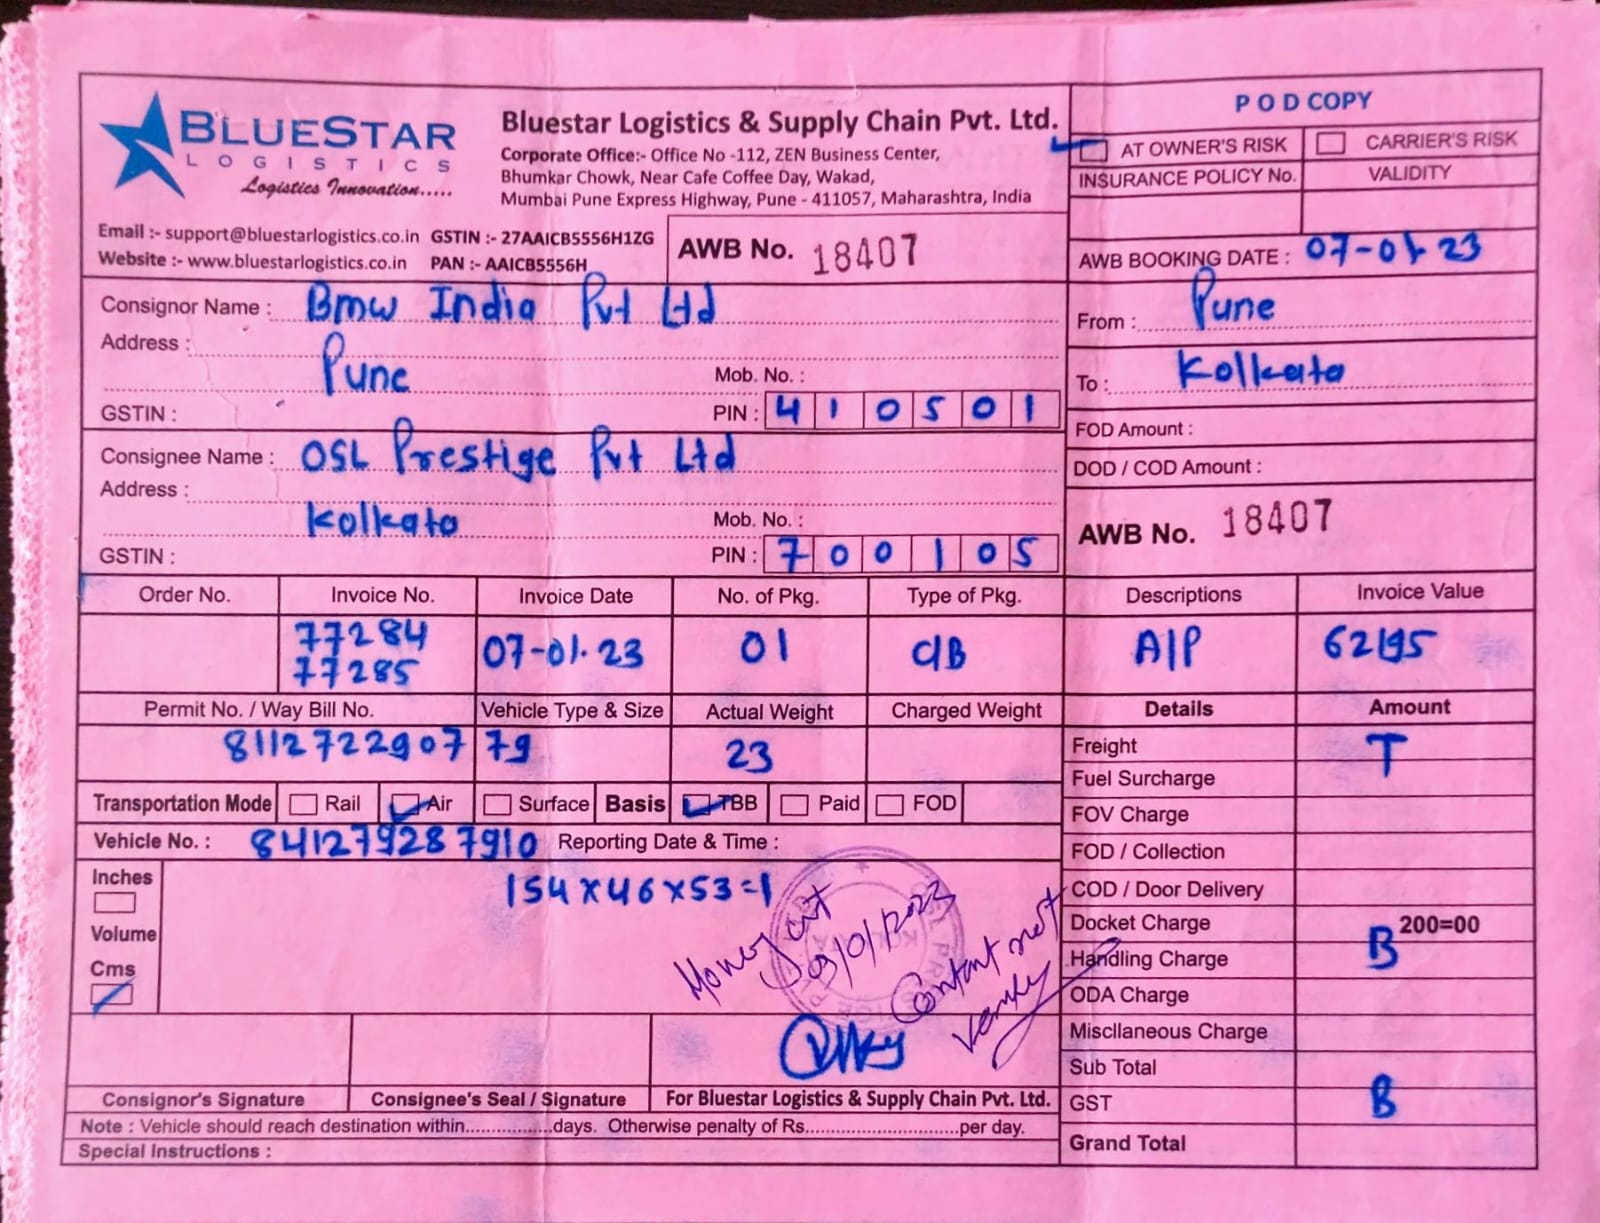 BLUESTAR
LOGISTICS
Logistics Innovation.....
Bluestar Logistics & Supply Chain Pvt. Ltd.
Corporate Office:- Office No -112, ZEN Business Center,
Bhumkar Chowk, Near Cafe Coffee Day, Wakad,
Mumbai Pune Express Highway, Pune - 411057, Maharashtra, India
Email :- support@bluestarlogistics.co.in GSTIN :- 27AAICB5556H1ZG
Website :- www.bluestarlogistics.co.in PAN :- AAICB5556H
AWB No. 18407
POD COPY
AT OWNER'S RISK CARRIER'S RISK
INSURANCE POLICY No. VALIDITY
AWB BOOKING DATE : 07-01-23
Consignor Name : Bmw India Pvt Ltd
Address :
Pune Mob. No. :
GSTIN : PIN : 410501
From : Pune
To : Kolkata
FOD Amount :
DOD / COD Amount :
AWB No. 18407
Consignee Name : OSL Prestige Pvt Ltd
Address :
Kolkata Mob. No. :
GSTIN : PIN : 700105
Order No. Invoice No. Invoice Date No. of Pkg. Type of Pkg. Descriptions Invoice Value
77284 07-01-23 01 C/B A/P 62195
77285
Permit No. / Way Bill No. Vehicle Type & Size Actual Weight Charged Weight Details Amount
811272290779 23
Freight T
Fuel Surcharge
Transportation Mode Rail Air Surface Basis TBB Paid FOD
FOV Charge
Vehicle No. : 841279287910 Reporting Date & Time :
FOD / Collection
Inches
154x46x53=1
COD / Door Delivery
Docket Charge 200=00
Volume
Handling Charge B
Cms
ODA Charge
Content not
Miscllaneous Charge
Sub Total
GST B
Grand Total
Consignor's Signature Consignee's Seal / Signature For Bluestar Logistics & Supply Chain Pvt. Ltd.
Note : Vehicle should reach destination within................days. Otherwise penalty of Rs............................per day.
Special Instructions :